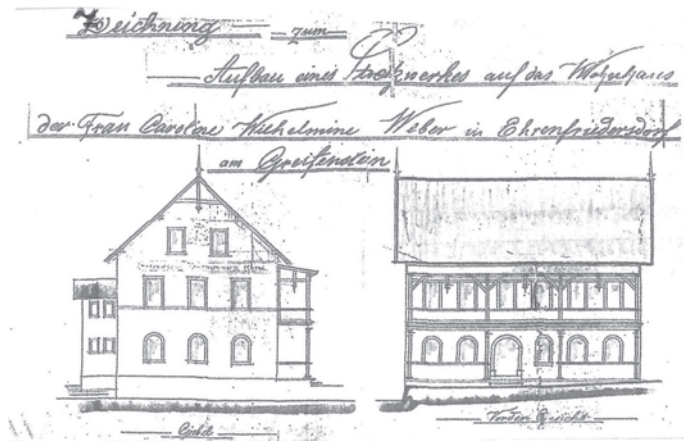 Zeichnung zum
Aufbau eines Stockwerkes auf das Wohnhaus
der Frau Caroline Wilhelmine Weber in Ehrenfriedersdorf
am Greifenstein
Giebel
Vordere Ansicht